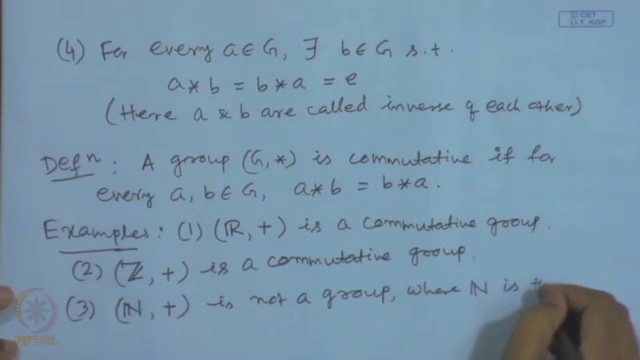 © CET
I.I.T. KGP
(4) For every a ∈ G, ∃ b ∈ G s.t.
a * b = b * a = e
(Here a & b are called inverse of each other)
Defⁿ : A group (G, *) is commutative if for
every a, b ∈ G, a * b = b * a.
Examples : (1) (ℝ, +) is a commutative group.
(2) (ℤ, +) is a commutative group.
(3) (ℕ, +) is not a group, where ℕ is
NPTEL